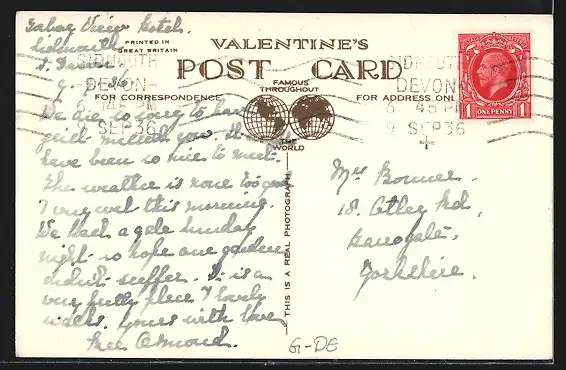 View Hotel,
Sidmouth
PRINTED IN
GREAT BRITAIN
VALENTINE'S
POST CARD
FAMOUS
THROUGHOUT
THE
WORLD
FOR CORRESPONDENCE
FOR ADDRESS ONL
SIDMOUTH
DEVON
SEP 36
SIDMOUTH
DEVON
6 45 PM
9 SEP 36
ONE PENNY
1 1
We are so sorry to have
just missed you. It
have been so nice to meet.
The weather is none too good
& very wet this morning.
We had a gale Sunday
night so hope our garden
didn't suffer. It is a
very pretty place & lovely
walks. Yours with love
Osmond.
THIS IS A REAL PHOTOGRAPH
Mrs Bonner.
18. Otley Rd,
Harrogate.
Yorkshire.
G-DE